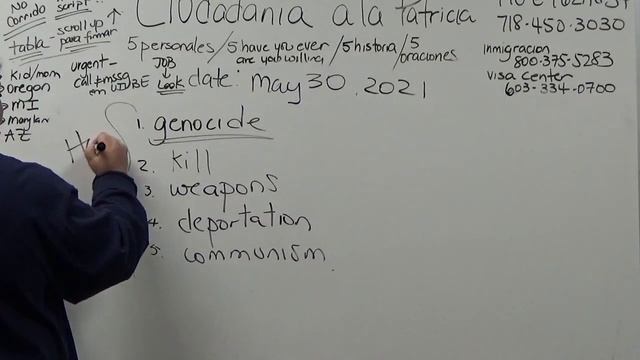 No script
corrido
tabla - scroll up
para firmar
Kid/mom
oregon
MI
AZ
urgent -
call + mssg
em
Ciudadania a la Patricia
5 personales / 5 have you ever / 5 historia / 5
are you willing oraciones
JOB
BE Look date: May 30. 2021
1. genocide
2. kill
3. weapons
4. deportation
5. communism
H
718-450-3030
inmigracion
800-375-5283
Visa center
603-334-0700